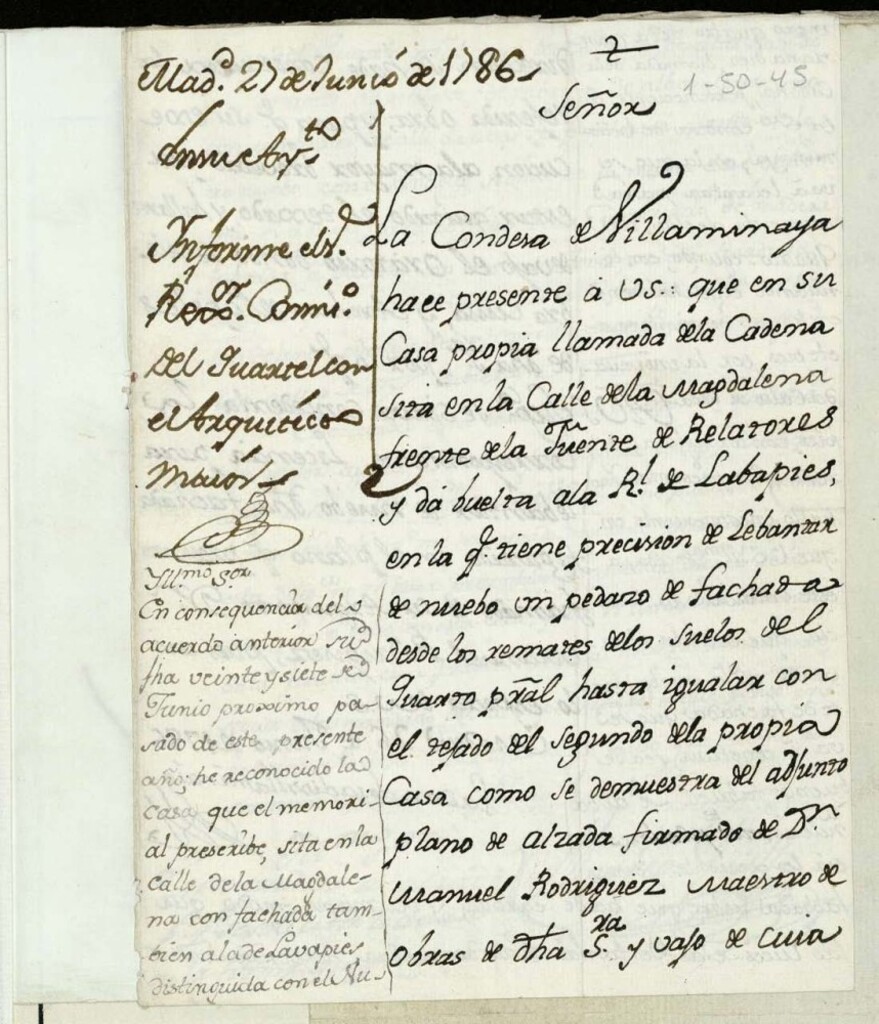 Mad.d 27 de Junio de 1786
En su Ay.to
Informe el S.r
Rexor. Comis.o
del Quartel con
el Arquitecto
mayor
Yll.mo S.or
En consequencia del
acuerdo anterior su
fha veinte y siete de
Junio proximo pa-
sado de este presente
año; he reconocido la
Casa que el memori-
al prescribe, sita en la
Calle de la Magdale-
na con fachada tam-
bien a la de Lavapies
distinguida con el Nu-
2
1-50-45
Señor
La Condesa de Villaminaya
hace presente á Vs.: que en su
Casa propia llamada de la Cadena
sita en la Calle de la Magdalena
frente de la Fuente de Relatores
y dá buelta a la R.l de Labapies,
en la q.e tiene precision de Lebantar
de nuebo un pedazo de fachada
desde los remates de los suelos del
Quarto pral hasta igualar con
el tejado del segundo de la propia
Casa como se demuestra del adjunto
plano de alzada firmado de D.n
Manuel Rodriguez Maestro de
Obras de dha S.ra y vajo de cuia